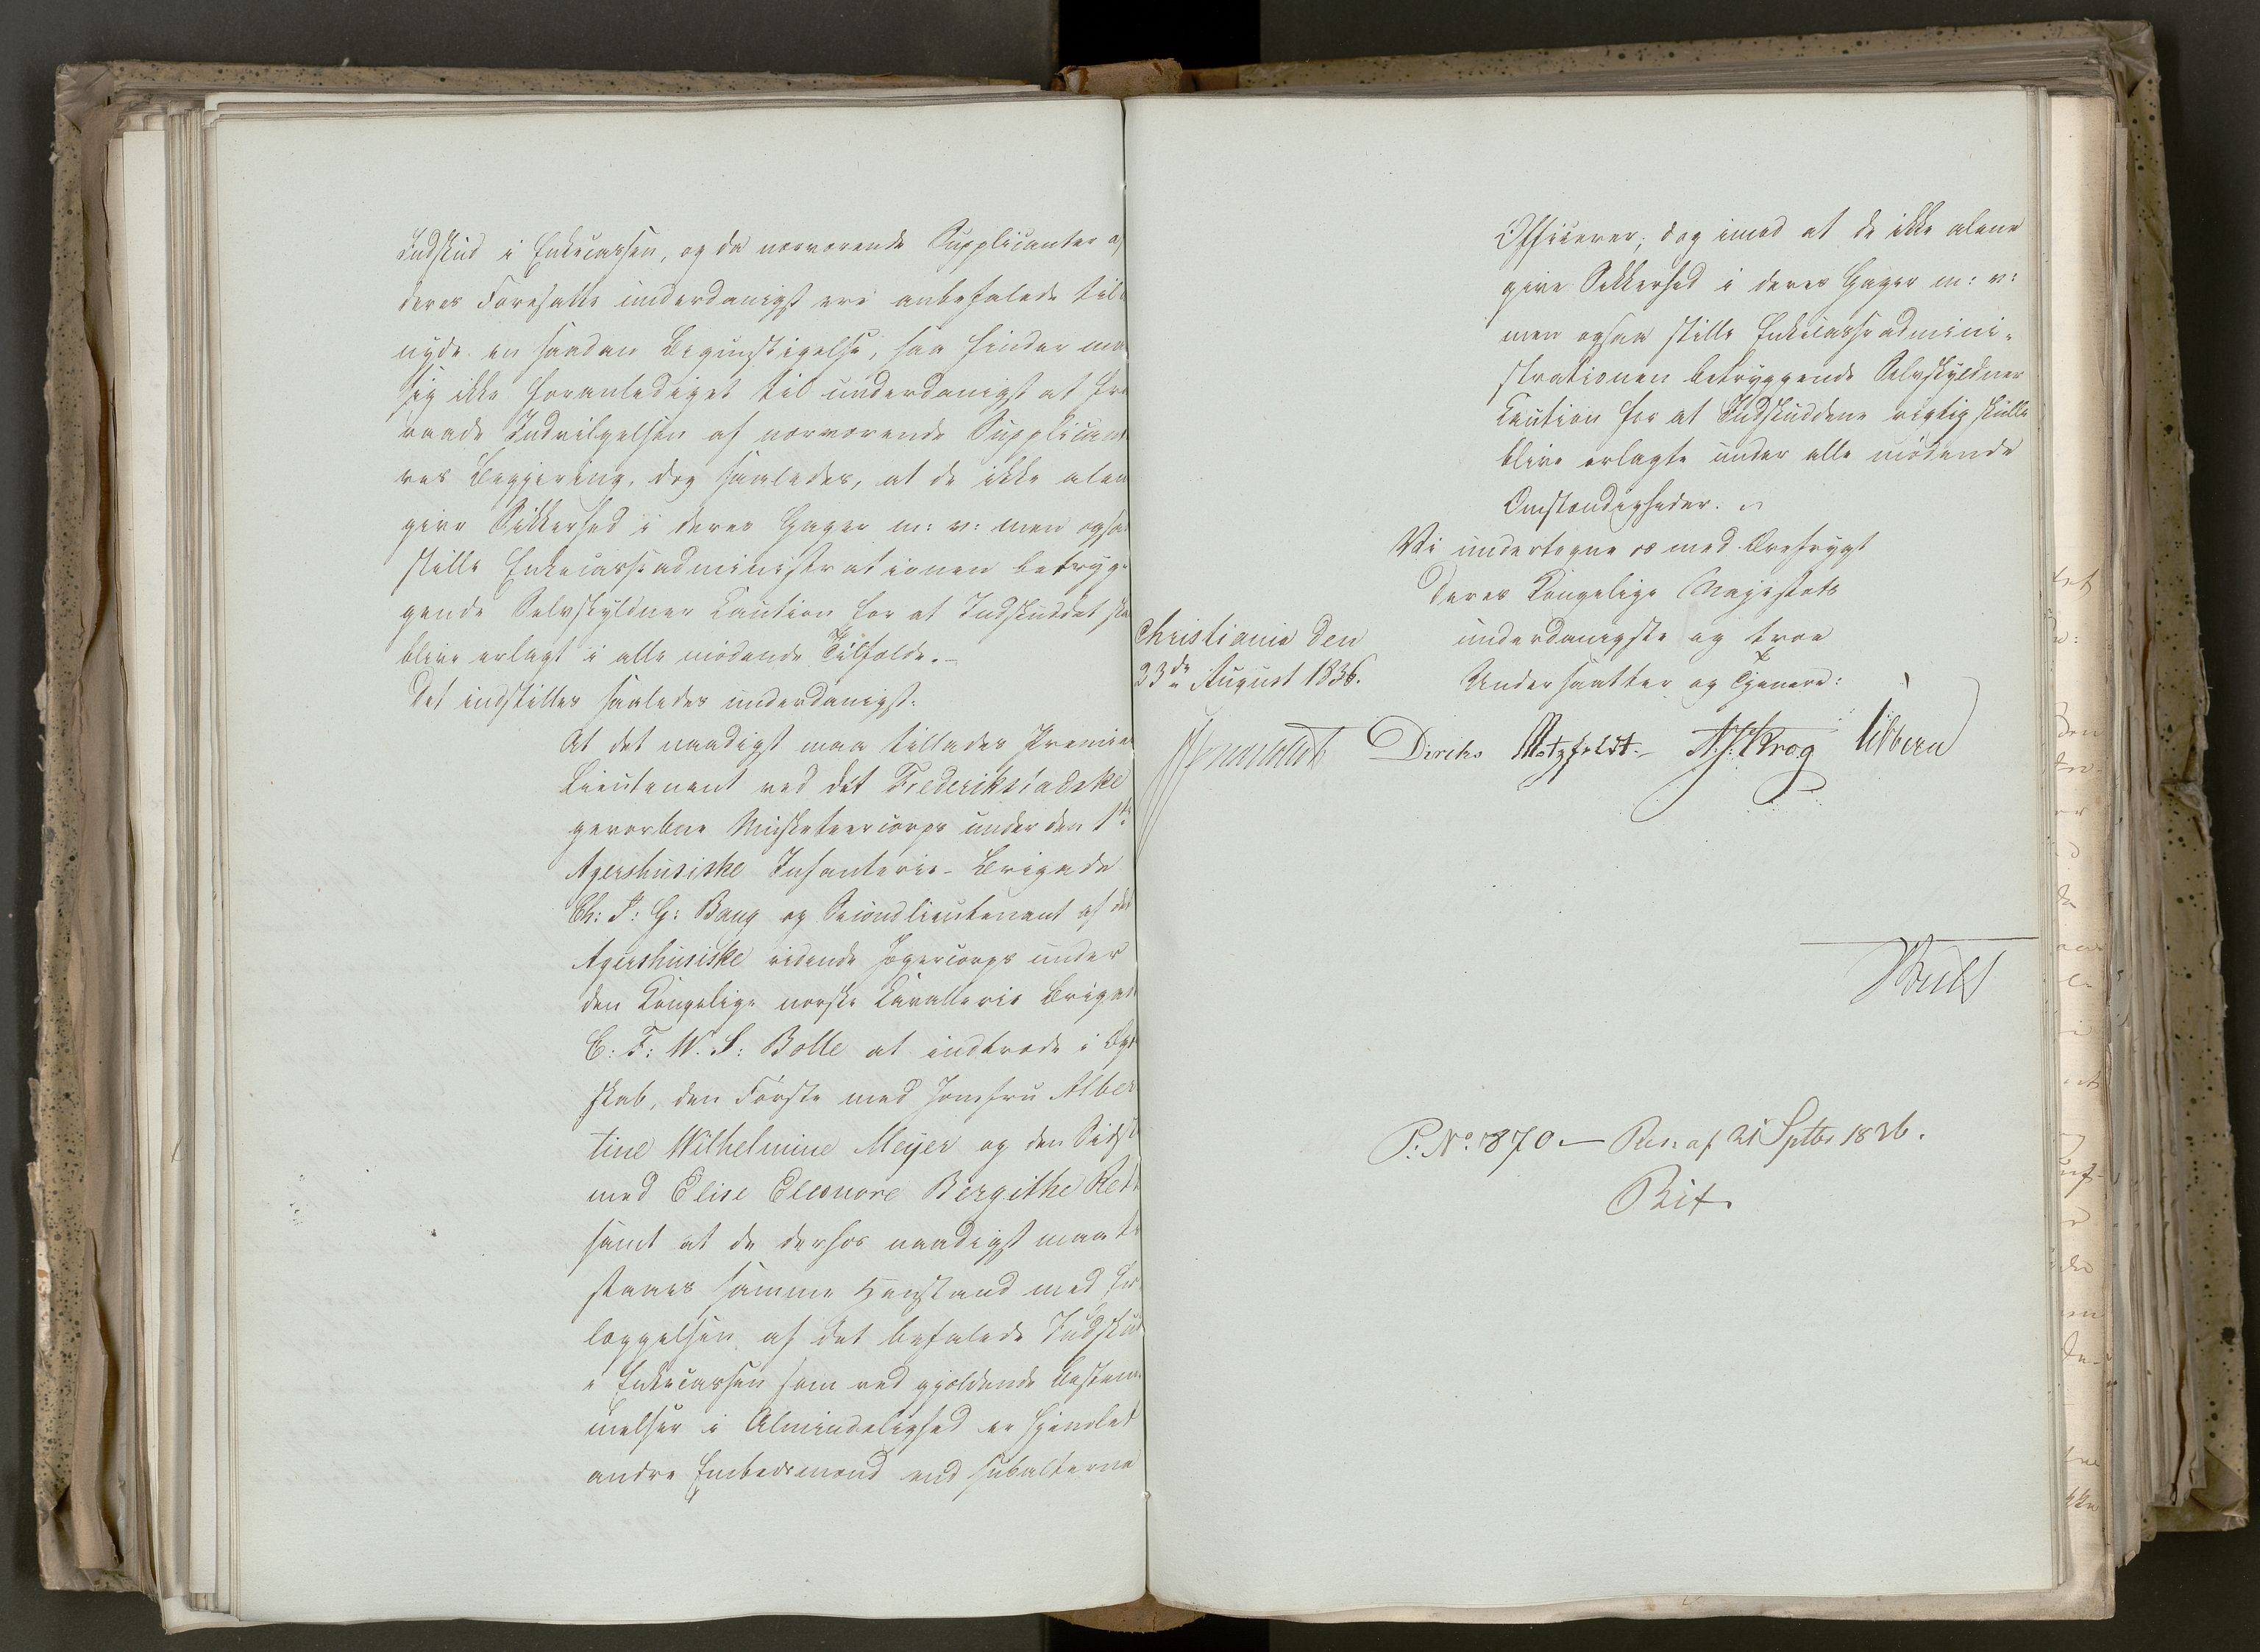 Indskud i Enkecassen, og da nærværende Supplicanter af
deres Foresatte underdanigst ere anbefalede til at
nyde en saadan Begunstigelse, saa finder ma
sig ikke foranlediget til underdanigst at fra
raade Indvilgelsen af nærværende Supplican
res Begjering, dog saaledes, at de ikke alen
give Sikkerhed i deres Gager m: v: men ogsaa
stille Enkecasseadministrationen betryg-
gende Selvskyldner Kaution for at Indskuddet ska
blive erlagt i alle mødende Tilfælde.-
Det indstilles saaledes underdanigst:
At det naadigst maa tillades Premier
Lieutenant ved det Frederikstadske
gevorbne Musketeercorps under den 1ste
Agershusiske Infanterie-Brigade
Ch: F: G: Bang og Secondlieutenant af det
Agershusiske ridende Jægercorps under
den Kongelige norske Kavallerie Brigade
C: F: W. S: Bolle at indtræde i Ægte
skab, den Første med Jomfru Alber
tine Wilhelmine Meyer og den Sidste
med Elise Eleonore Bergithe
samt at de derhos naadigst maa til
staaes samme Henstand med Er
læggelsen af det befalede Indskud
i Enkecassen som ved gjældende Bestem
melser i Almindelighed er hjemlet
andre Embedsmænd end subalterne
Officerer; dog imod at de ikke alene
give Sikkerhed i deres Gager m: v:
men ogsaa stille Enkecasseadmini-
strationen betryggende Selvskyldner
Kaution for at Indskuddene rigtig skulle
blive erlagte under alle mødende
Omstændigheder.
Vi undertegne os med Ærefrygt
Deres Kongelige Majestæts
Christiania den underdanigste og troe
23de August 1836. Undersaatter og Tjenere:
Diriks Motzfeldt N. J. Krog Vibern
P: No 1870.- Res: af 21 Septbr 1836.